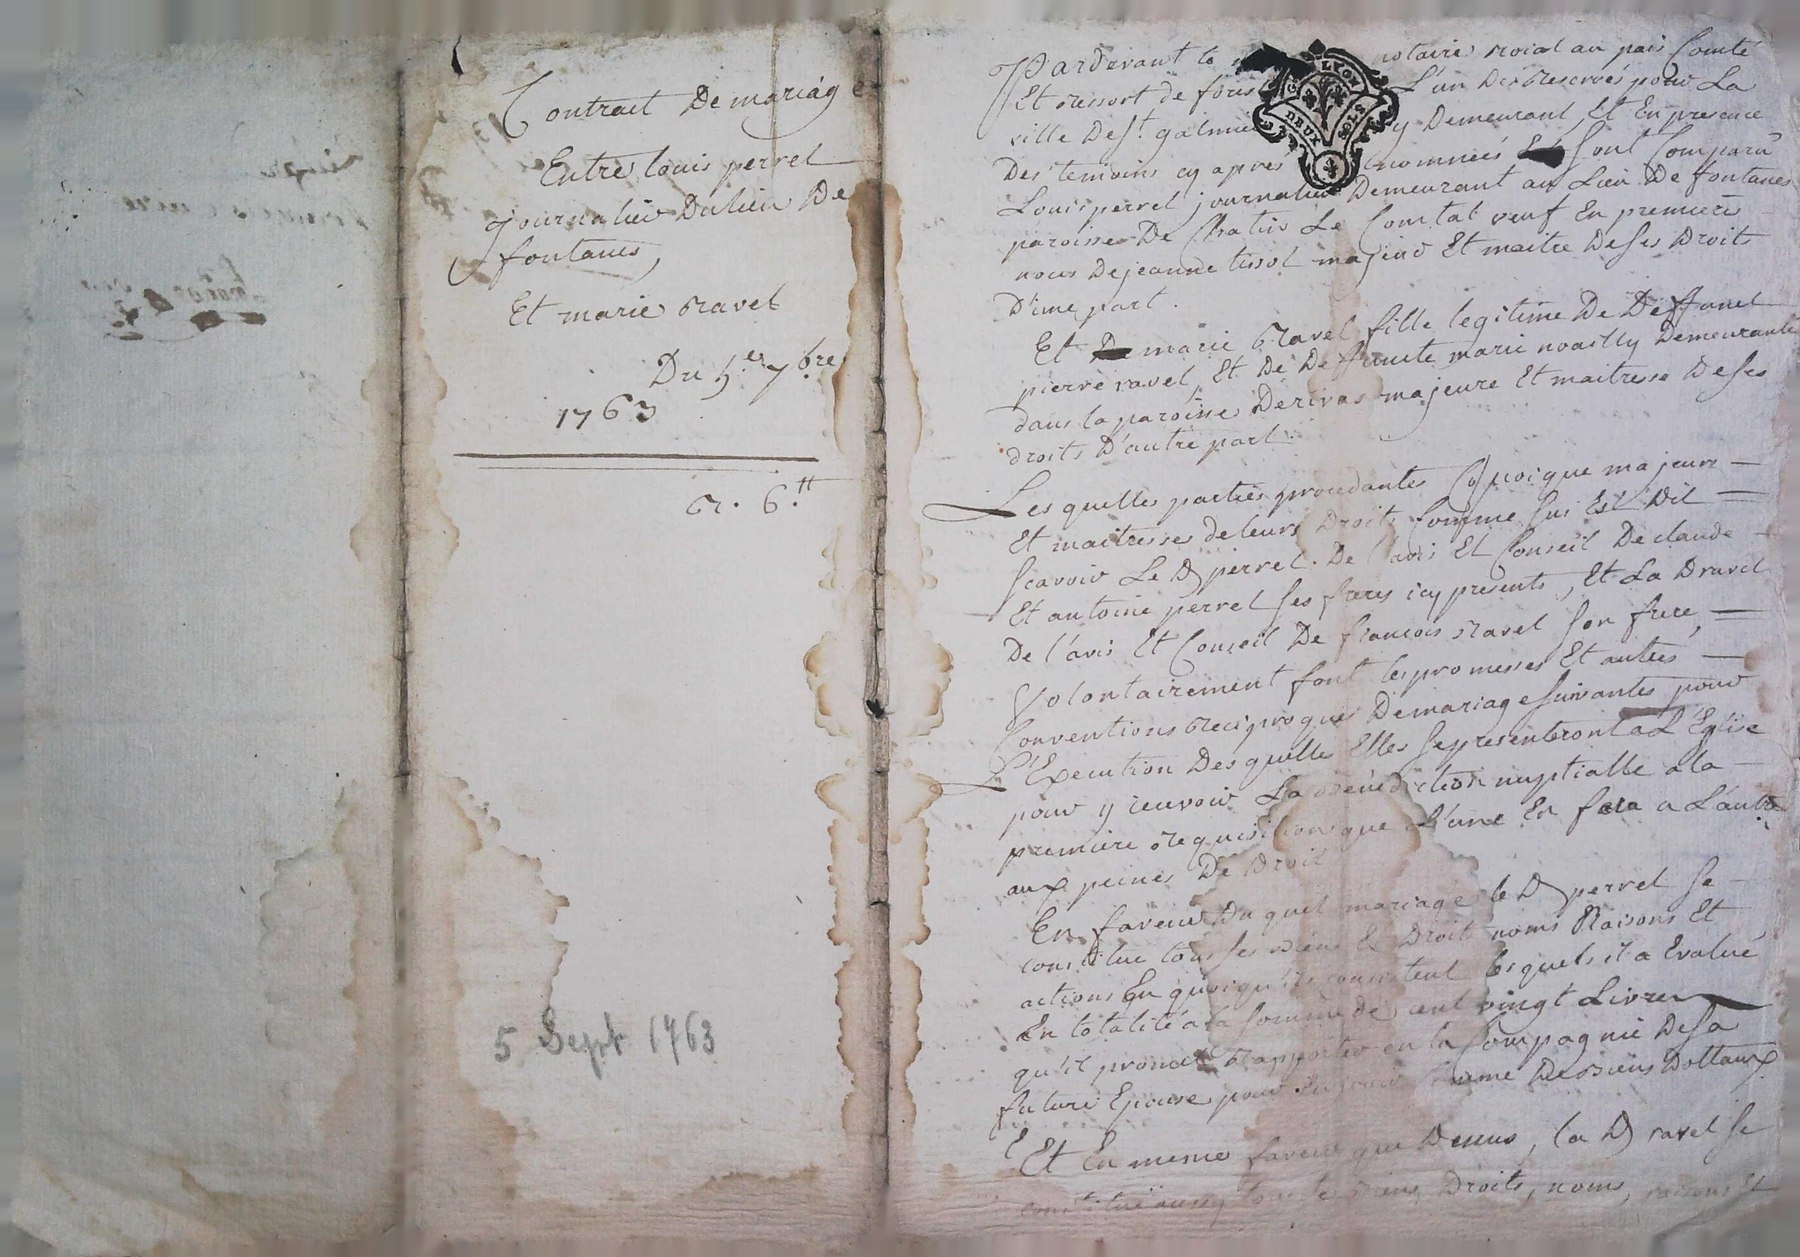 Contract De mariage
Entre Louis perrel
journalier Du lieu De
fontanes,
Et marie ravel
Du 5.e 7bre
1763
r. 6.tt
5 Sept 1763
G. LYON
DEUX SOLS
Pardevant le notaire roial au païs Comté
Et ressort de forest L'un Des Reservés pour La
ville De St. galmier y Demeurant, Et En presence
Des temoins cy apres nommeés Sont Comparû
Louis perrel journalier Demeurant au Lieu De fontanes
paroisse De Chativ Le Comtal veuf En premieres
noces De jeanne tissot majeur Et maitre De Ses Droits
D'une part.
Et marie Ravel fille legitime De Deffunct
pierre ravel, Et De Deffuncte marie noailly Demeurante
dans la paroisse De rivas majeure Et maitresse De Ses
droits D'autre part.
Les quelles parties procedantes Quoique majeurs
Et maitresses de leurs Droits Comme Sus Est Dit
Scavoir Le D perrel De l'avis Et Conseil De claude
Et antoine perrel Ses freres icy presents, Et La D ravel
De l'avis Et Conseil De francois ravel Son frere,
Volontairement font les promesses Et autres
Conventions Reciproques De mariage Suivantes pour
L'Execution Des quelle Elles Se presenteront a L'Eglise
pour y recevoir La Bénédiction nuptialle a la
premiere Requisition que L'une En fera a L'autre
aux peines De Droit
En faveur Du quel mariage le D perrel Se
constitue tous Ses Biens Et Droit noms Raisons Et
actions En quoiqu'ils consistent les quels il a Evalué
En totalité a la Somme de cent vingt Livres
qu'il promet Rapporter en la Compagnie De Sa
future Epouse pour Comme De Biens Dottaux
Et En meme faveur que Dessus, la D ravel Se
constitue aussy tous Ses Biens Droits, noms, raisons Et